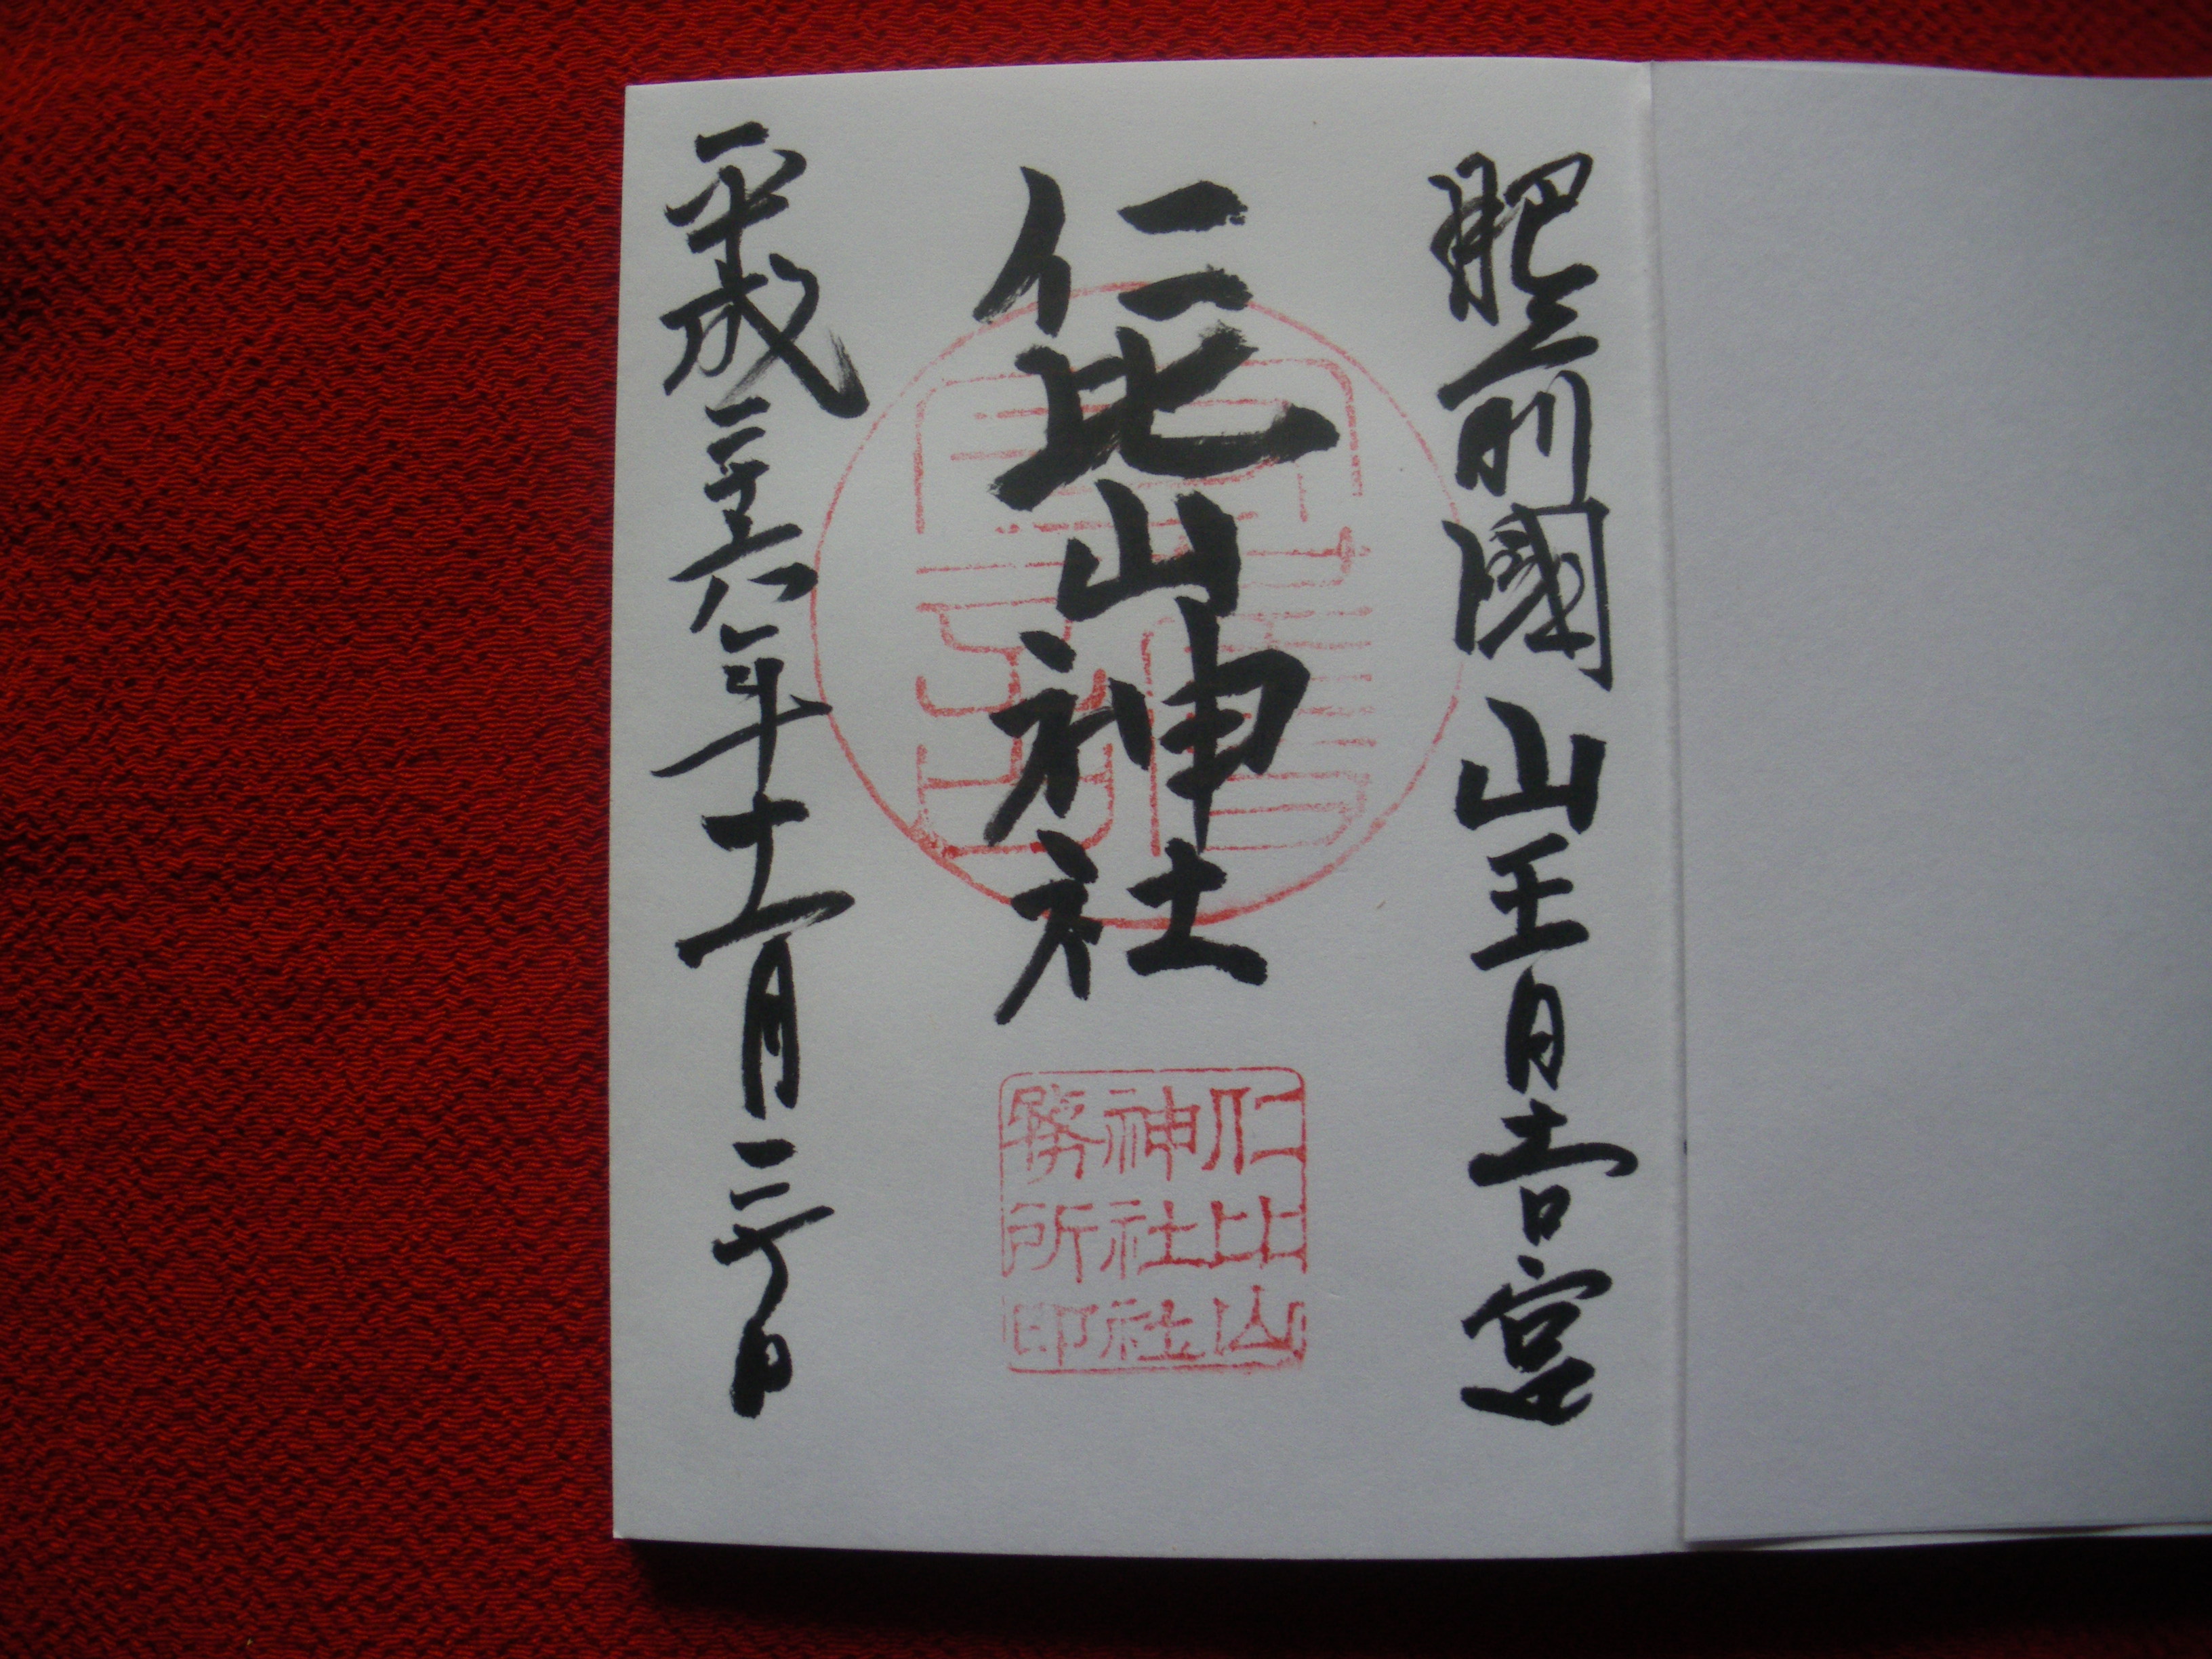 肥前國 山王日吉宮
仁比山神社
仁比山
神社社
務所印
平成二十六年十一月二十日